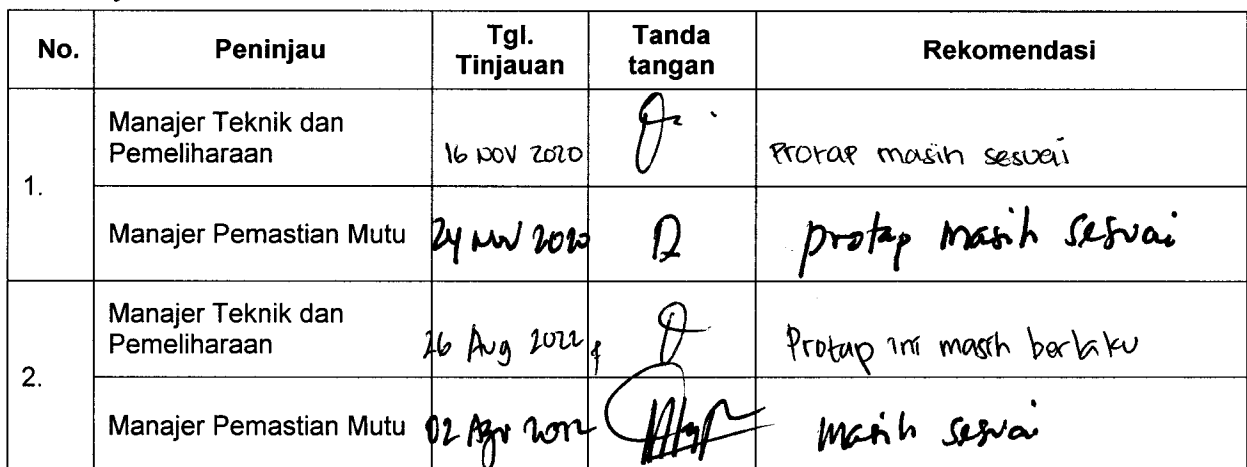 No. Peninjau Tgl. Tinjauan Tanda tangan Rekomendasi
1.
Manajer Teknik dan Pemeliharaan 16 NOV 2020 Protap masih sesuai
Manajer Pemastian Mutu 24 Nov 2020 protap masih sesuai
2.
Manajer Teknik dan Pemeliharaan 26 Aug 2022 Protap ini masih berlaku
Manajer Pemastian Mutu 02 masih sesuai